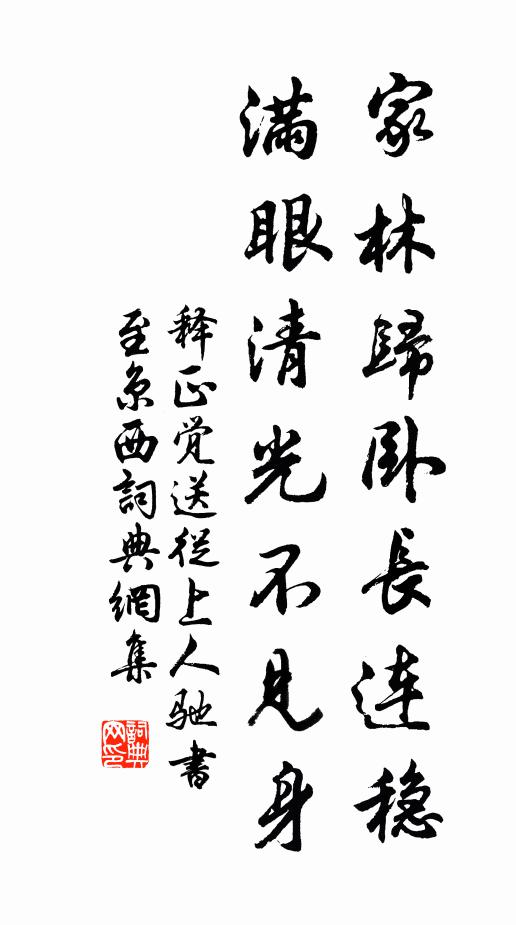 家林歸卧長连穏
滿眼清光不见身
释正覺送從上人驰書
至京西詞典網集
詞典网印